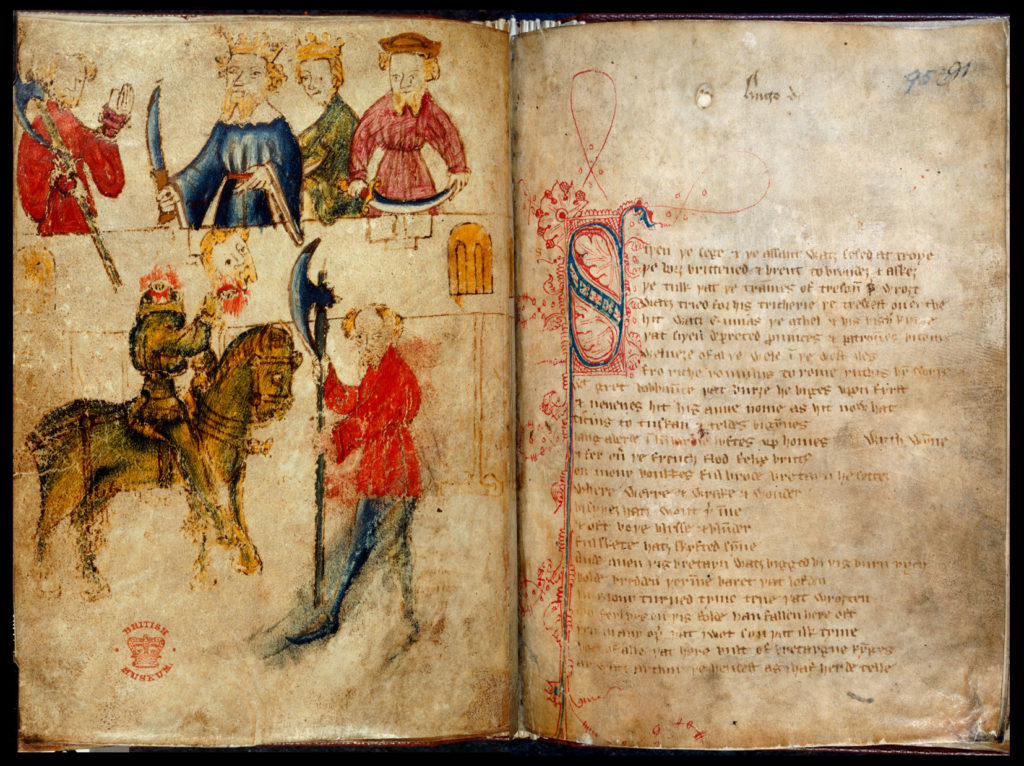 BRITISH
MUSEUM
Hugo de
95 91
Siþen þe sege & þe assaut watz sesed at troye
þe borȝ brittened & brent to brondez & askez
þe tulk þat þe trammes of tresoun þ̉ wroȝt
watz tried for his tricherie þe trewest on erthe
hit watz ennias þe athel & his highe kynde
þat siþen depreced prouinces & patrounes bicome
welneȝe of al þe wele in þe west iles
fro riche romulus to rome ricchis hym swyþe
gret bobbaūce þat burȝe he biges vpon fyrst
& neuenes hit his aune nome as hit now hat
ticius to tuskan & teldes bigynnes
langaberde in lumbardie lyftes vp homes wyth wynne
& fer oủ þe french flod felix brutus
on mony bonkkes ful brode bretayn he settez
where werre & wrake & wonder
bi syþez hatz wont þ̉ inne
& oft boþe blysse & blunder
ful skete hatz skyfted synne
Ande quen þis bretayn watz bigged bi þis burn rych
bolde bredden þ̉inne baret þat lofden
in mony turned tyme tene þat wroȝten
mo ferlyes on þis folde han fallen here oft
þen in any oþ̉ þat I wot syn þat ilk tyme
bot of alle þat here bult of bretaygne kynges
ay watz arthur þe hendest as I haf herde telle